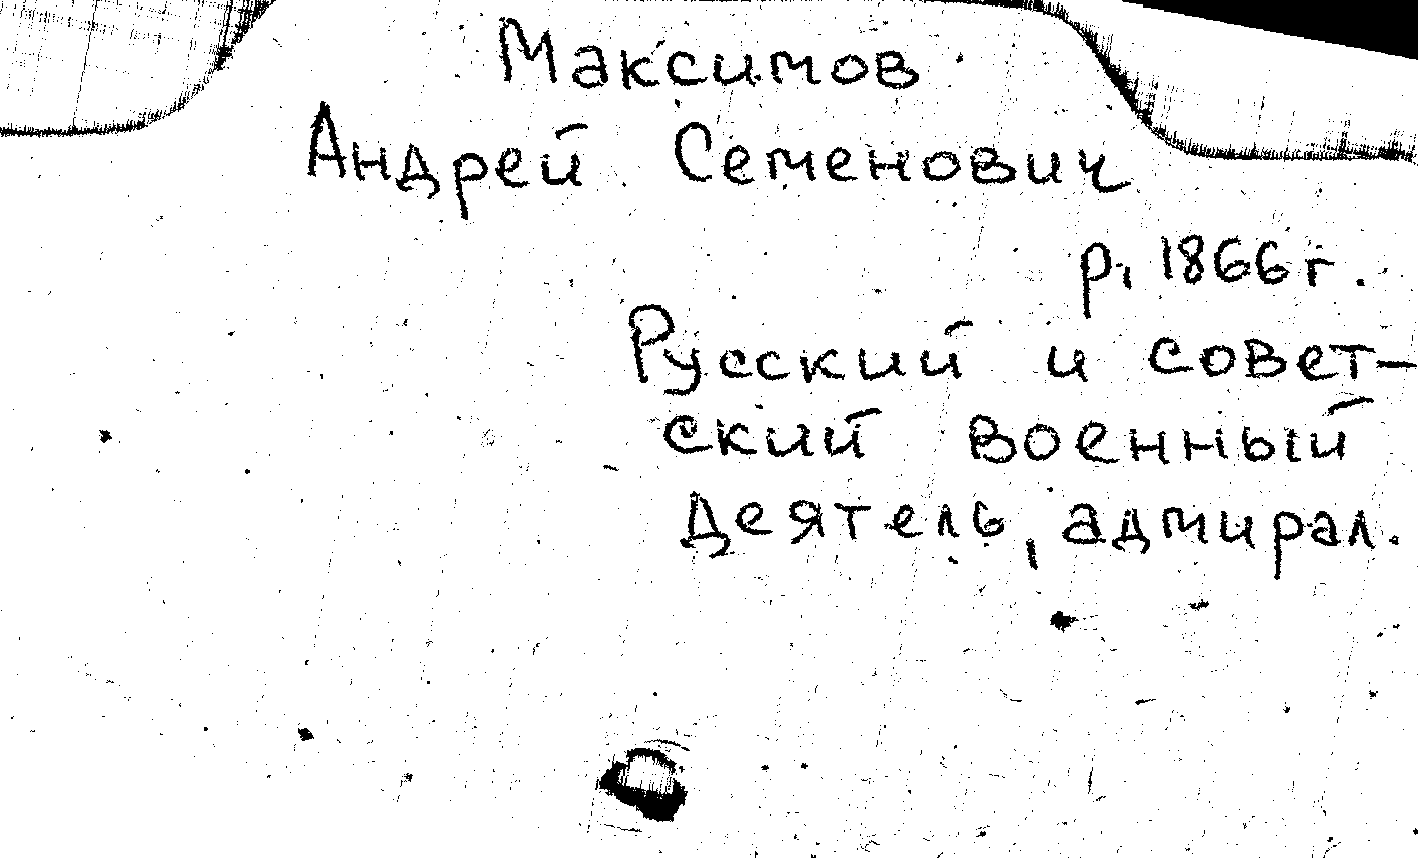 Максимов
Андрей Семенович
р. 1866 г.
Русский и совет-
ский военный
деятель, адмирал.